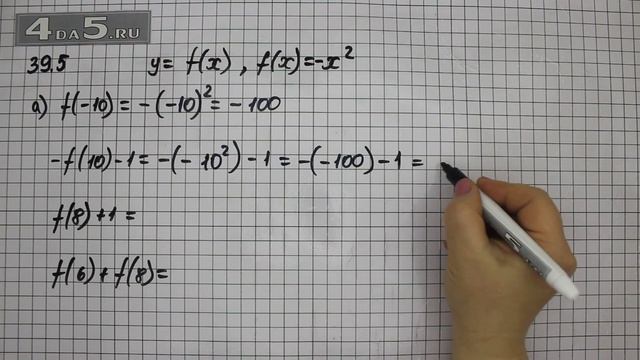 4DA5.RU
39.5 y = f(x), f(x) = -x²
а) f(-10) = -(-10)² = -100
-f(10)-1 = -(-10²)-1 = -(-100)-1 =
f(8)+1 =
f(6)+f(8) =